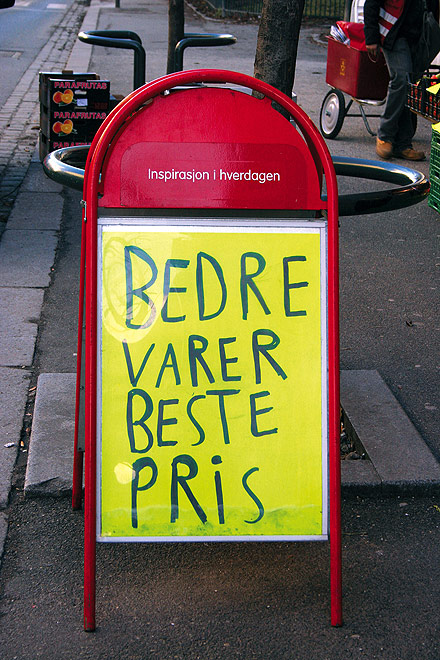 PARAFRUTAS
PARAFRUTAS
Inspirasjon i hverdagen
BEDRE
VARER
BESTE
PRiS